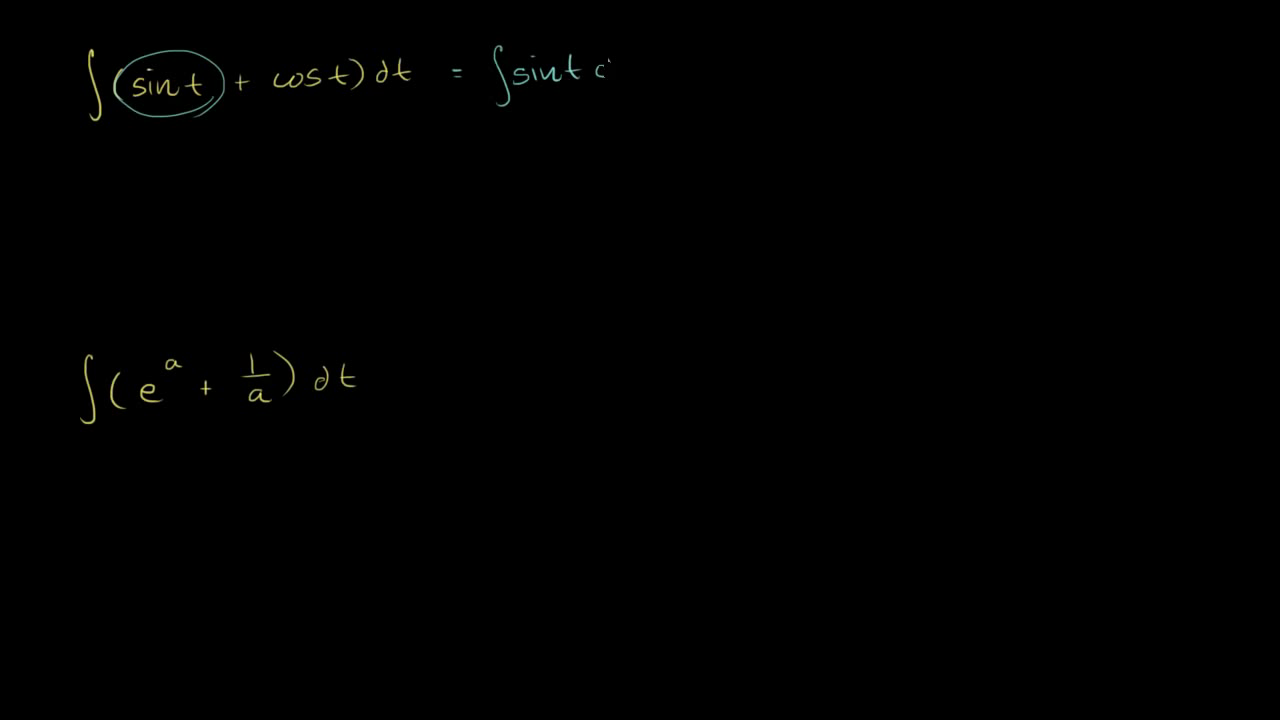 ∫(sin t + cos t) dt = ∫sin t d
∫(e^a + 1/a) dt